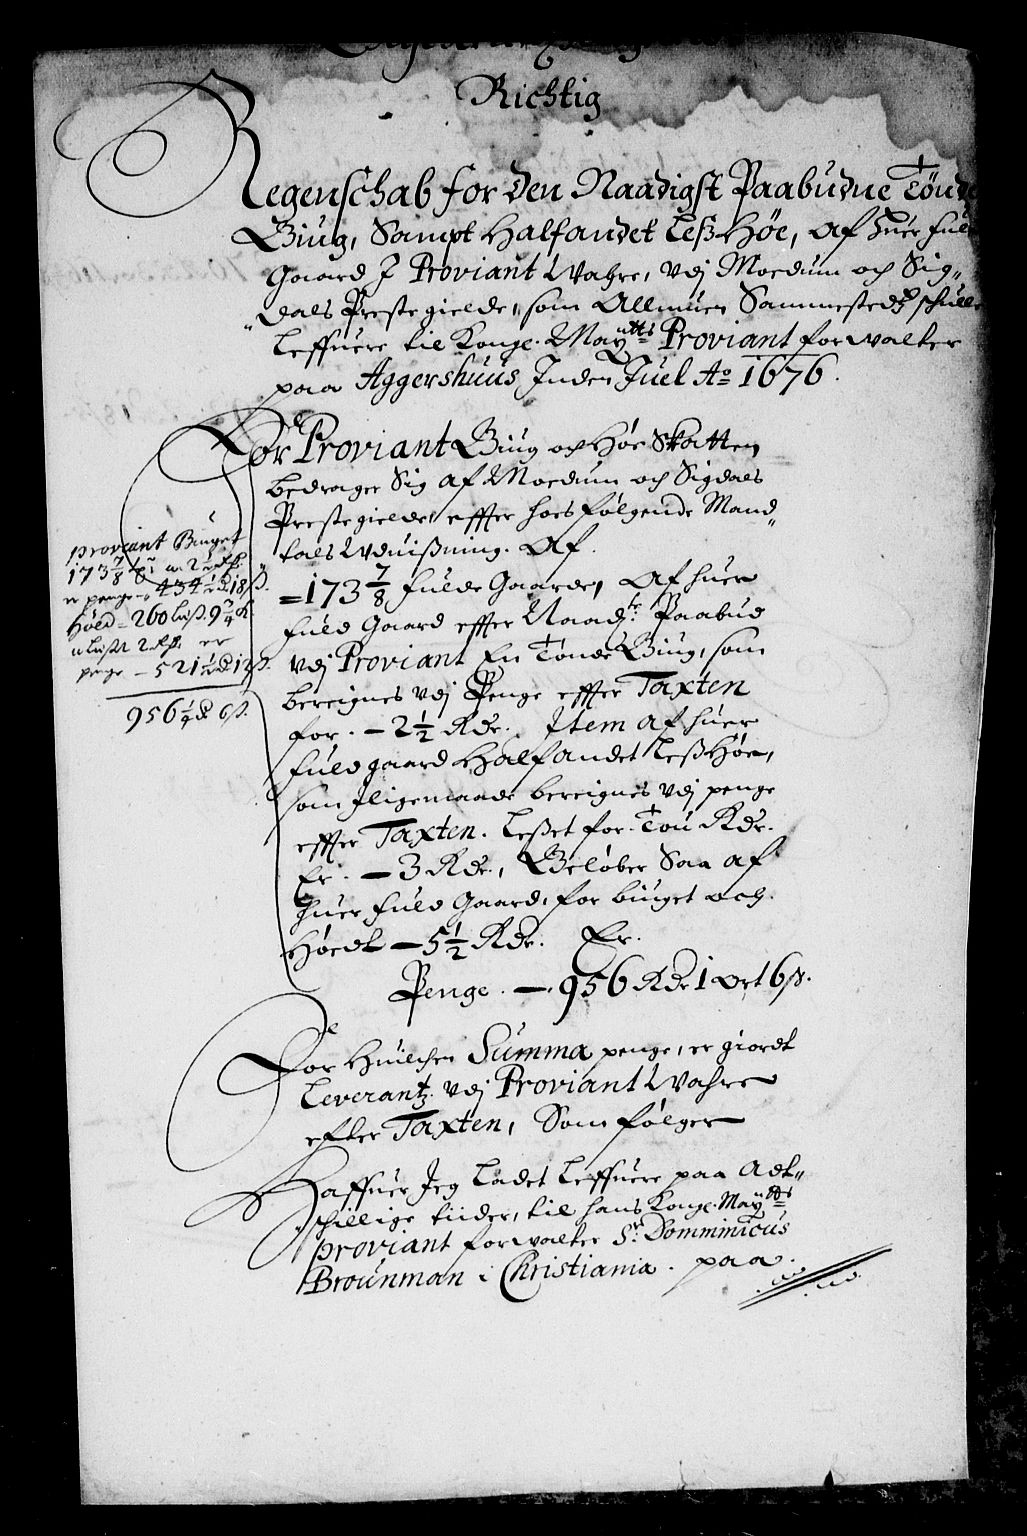 Richtig
Regenschab for den Naadigst Paabudne Tønde
Biug, Sampt Halfandet Leß Høe, af huer fuld
Gaard J Proviant Wahre, vdj Moedum och Sig„
„dals Prestegielde, som Allmuen Sammestedtz schulle
Leffuere til Konge. Maytts Proviant forwalter
paa Aggershuus Inden Juel Ao 1676.
For Proviant Biug och Høe Skatten
bedrager Sig af Moedum och Sigdals
Prestegielde, effter hoesfølgende Mand„
tals Wduißning. Af.
=173 7/8 fulde Gaarde, Af huer
fuld Gaard effter Naadste Paabud
vdj Proviant En Tønde Biug, som
bereignes vdj Penge effter Taxten
for. – 2 1/2 Rdr. Item af huer
fuld gaard Halfandet Leß Høe,
som Iligemaade bereignes vdj penge
effter Taxten. Leßet for. Tou Rdr.
Er. – 3 Rdr., Beløber Saa af
huer fuld Gaard, for biuget och
Høedt – 5 1/2 Rdr. Er.
Penge. – 956 Rdr 1 ort 6 ß.
proviant Biuget
173 7/8 a 2 1/2
er penge – 434 1/2 18 ß.
Høed – 260 Leß. 9 3/4
a Leßet 2 er
penge – 521 1/2 12 ß.
956 1/4 6 ß.
For Huilchen Summa penge, er giordt
Leverantz vdj Proviant Wahre
efter Taxten, Som følger
Haffuer Jeg Ladet Leffuere paa Adt„
schillige tiider, til hans Konge. Maytts
proviant forwalter Sr. Domminicus
Brounman i Christiania. paa.